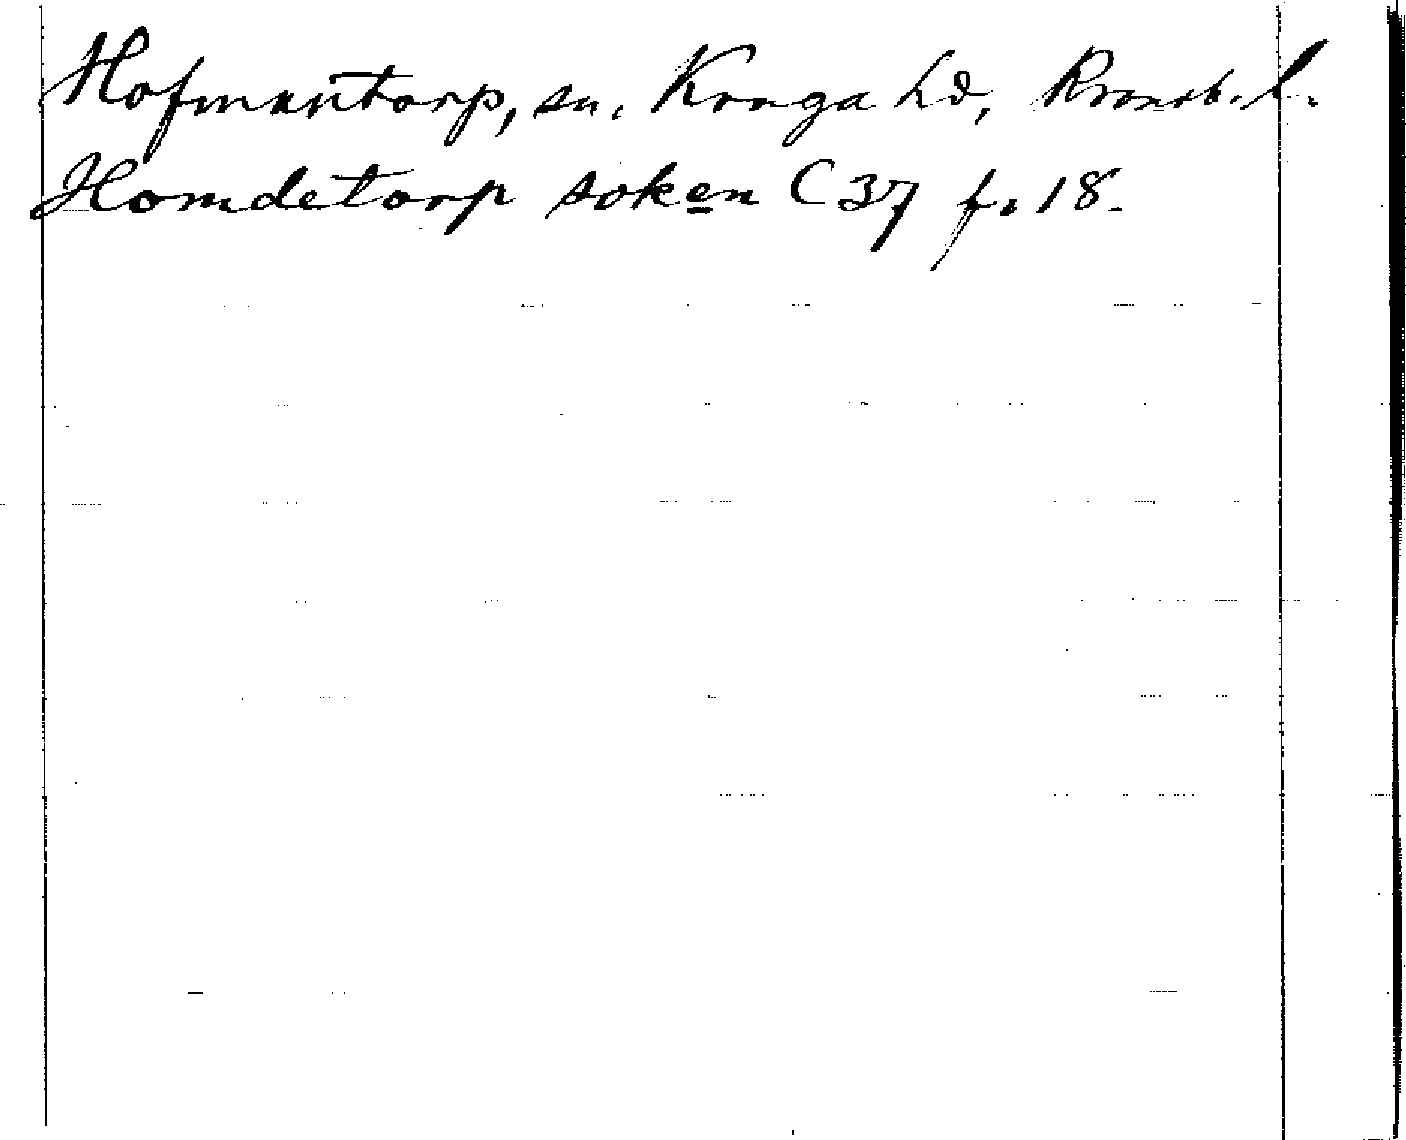 Hofmantorp, sn, Konga hd, Kronob. l.
Homdetorp soken C 37 f. 18.